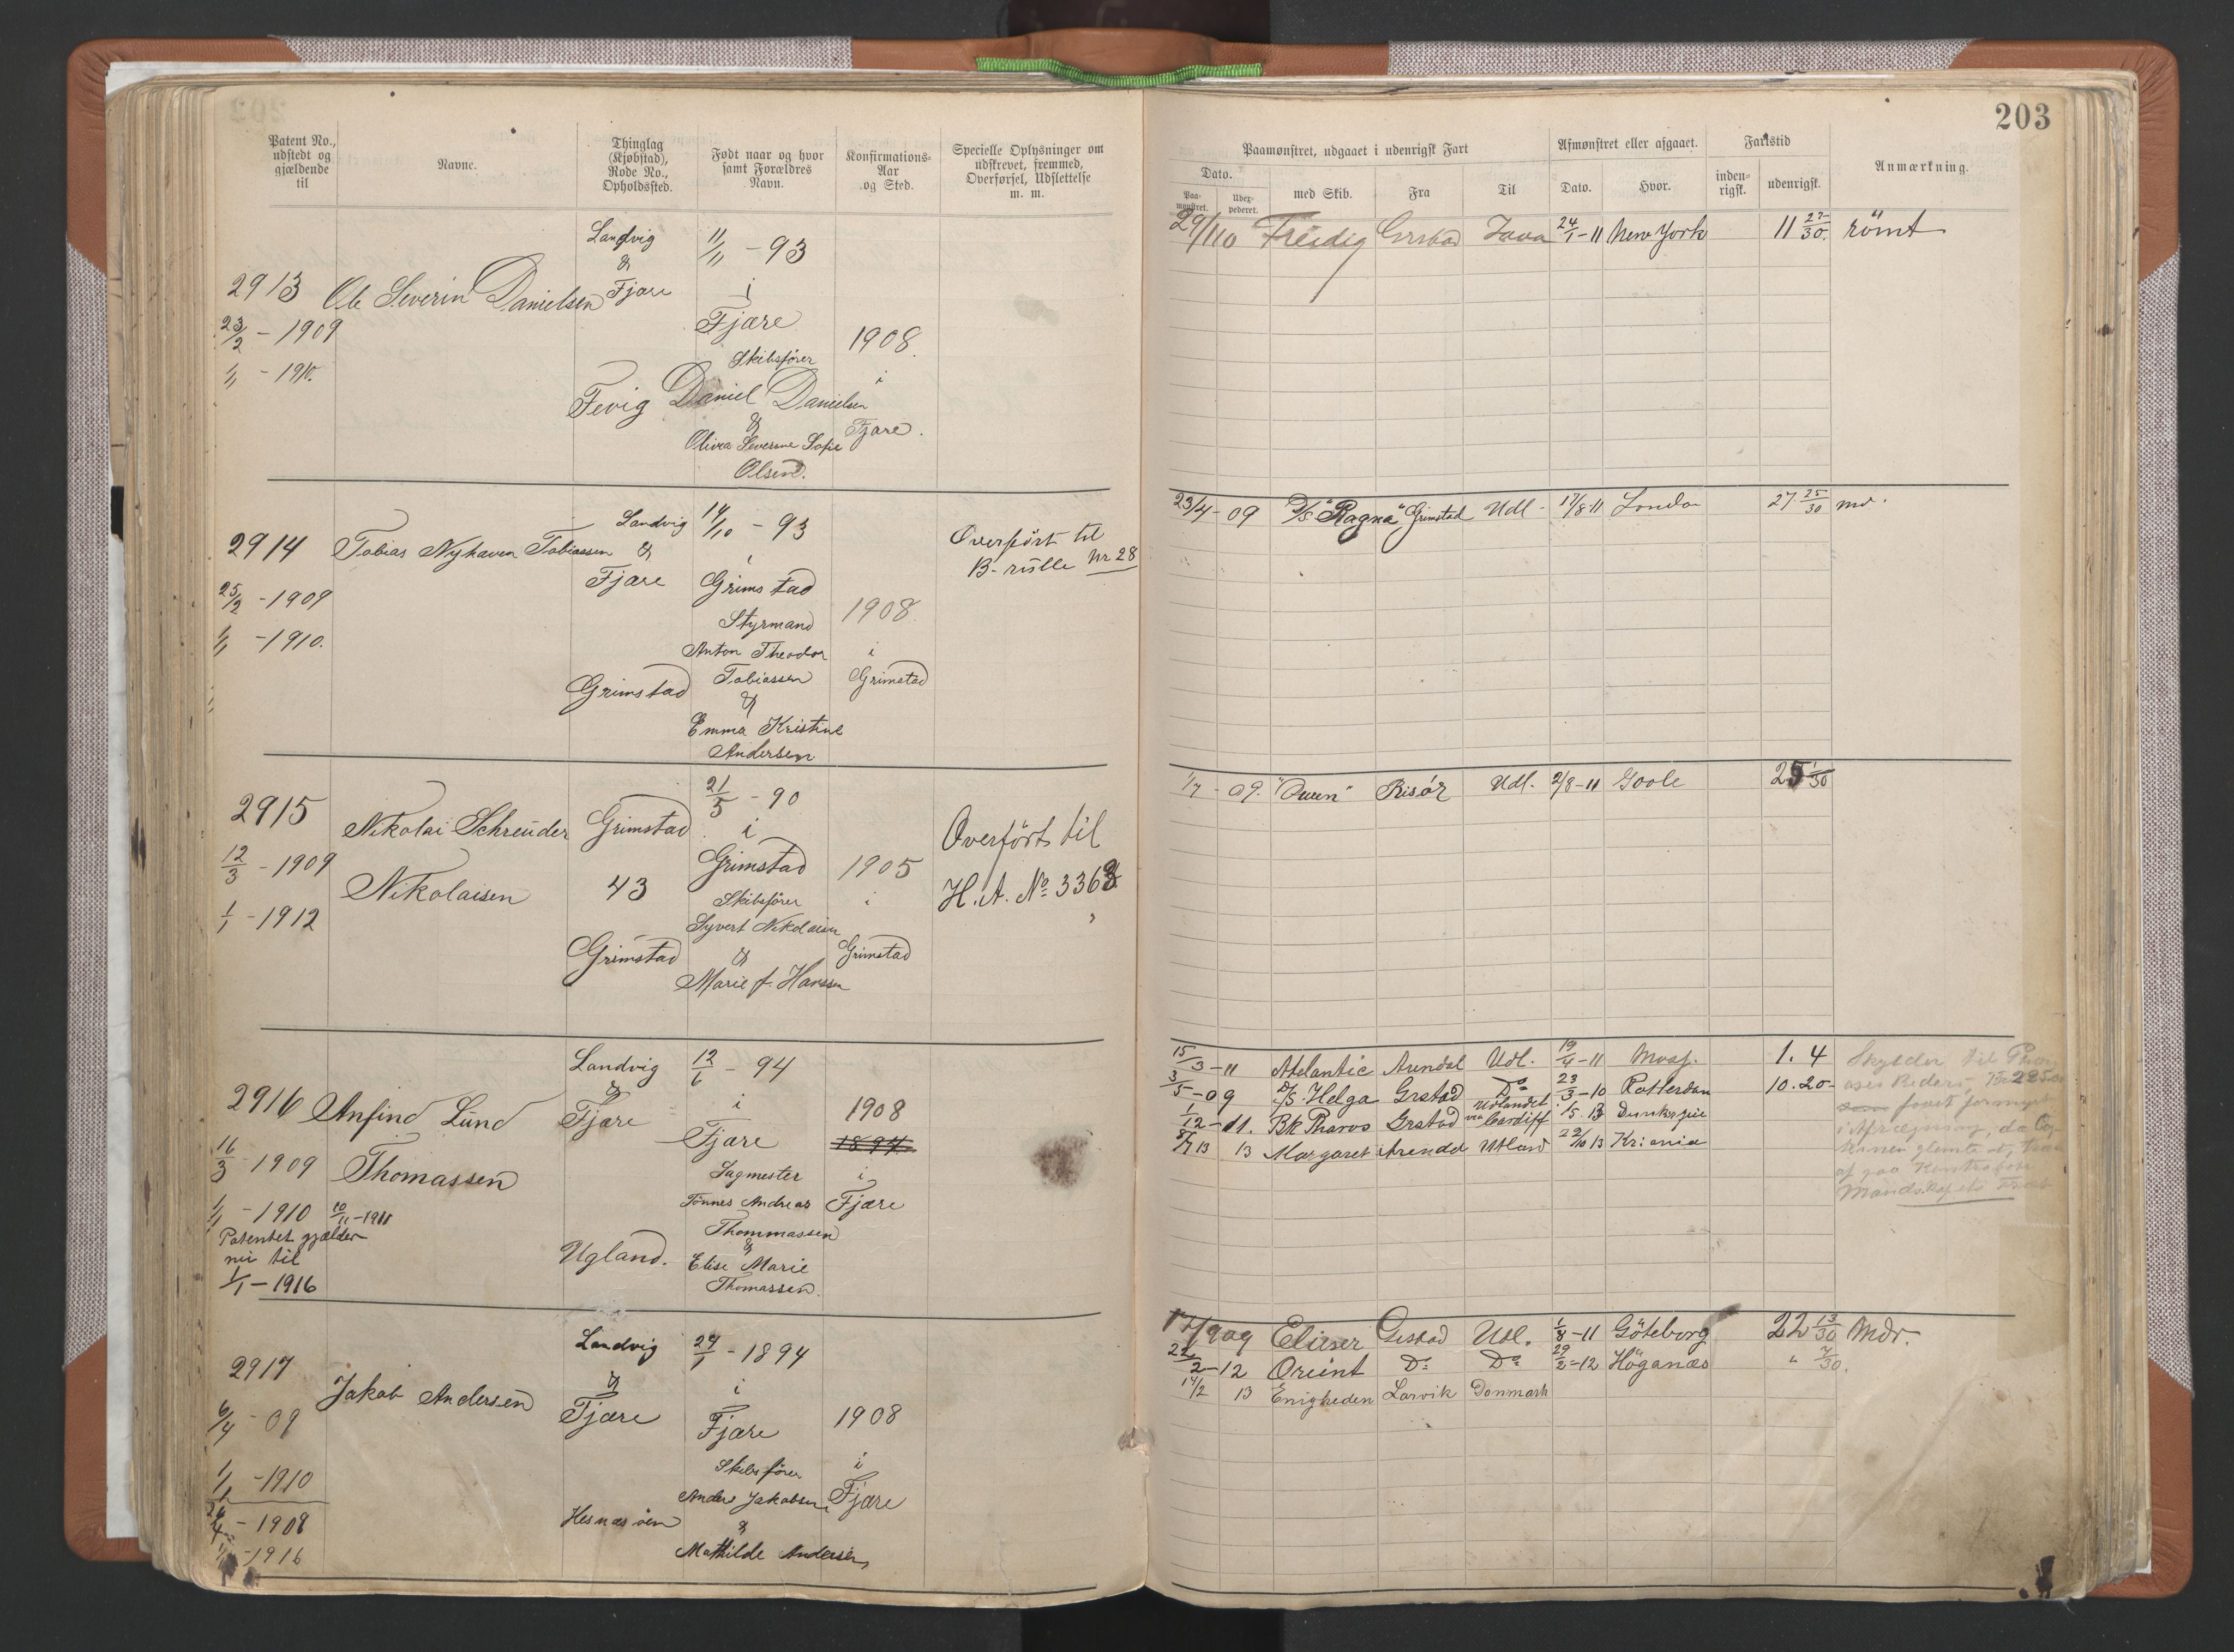 203
Patent No.,
udstedt og
gjældende
til
Navne.
Thinglag
(Kjøbstad),
Rode No.,
Opholdssted.
Født naar og hvor
samt Forældres
Navn.
Konfirmations-
Aar
og Sted.
Specielle Oplysninger om
udskrevet, fremmed,
Overførsel, Udslettelse
m. m.
Paamønstret, udgaaet i udenrigsk Fart
Dato.
Paa-
mønstret.
Udex-
pederet.
med Skib.
Fra
Til
Afmønstret eller afgaaet.
Dato.
Hvor.
Fartstid
inden-
rigsk.
udenrigsk.
Anmærkning.
2913
23/2 - 1909
1/1 - 1910.
Ole Severin Danielsen
Landvig
&
Fjære
Fevig
11/11 - 93
i
Fjære
Skibsfører
Daniel Danielsen
&
Olivia Severine Sofie
Olsen.
1908.
i
Fjære.
29/1 10 Freidig Grstad Java 24/1-11 New York 11 27/30. römt
2914
25/2 - 1909
1/1 - 1910.
Tobias Nyhaven Tobiassen
Landvig
&
Fjære
Grimstad
14/10 - 93
i
Grimstad
Styrmand
Anton Theodor
Tobiassen
&
Emma Kristine
Andersen
1908
i
Grimstad
Overført til
B-rulle Nr 28
23/4 - 09 D/S "Ragna" Grimstad Udl. 17/8 11 London 27 25/30 md.
2915
12/3 - 1909
1/1 - 1912
Nikolai Schreuder
Nikolaisen
Grimstad
43
Grimstad
21/5 - 90
i
Grimstad
Skibsfører
Syvert Nikolaisen
&
Marie f. Hanssen
1905
i
Grimstad
Overført til
H. A. No 3363
1/7 - 09. Risør Udl. 2/8-11 Goole 25 1/30
2916
16/3 1909
1/1 - 1910 10/11-1911
Patentet gjælder
nu til
1/1 - 1916
Anfind Lund
Thomassen
Landvig
&
Fjære
Ugland.
12/6 - 94
i
Fjære
Sagmester
Tönnes Andreas
Thommassen
&
Elise Marie
Thomassen.
1908
1894
i
Fjære
15/3-11 Atlantic Arendal Udl. 19/4-11 Moss. 1. 4
3/5-09 D/S. Helga Grstad Do 23/3-10 Rotterdam 10.20-
1/12-11. Bk Pharos Grstad Udlandet via Cardiff 1/5 13 Dunkerque
8/7 13 13 Margaret Arendal Utland 22/10 13 Kriania
Skylder til
2917
6/4 - 09
1/1 - 1910
26/4 - 1908
1/1 - 1916
Jakob Andersen
Landvig
&
Fjære
Hesnæsøen
27/1 - 1894
i
Fjære
Skibsfører
Anders Jakobsen
&
Mathilde Andersen,
1908
i
Fjære
17/9 09 Elieser Grstad Udl. 1/8-11 Göteborg 22 13/30 Mdr.
22/2-12 Orient Do Do 29/2-12 Höganæs " 7/30.
14/2 13 Enigheden Larvik Danmark